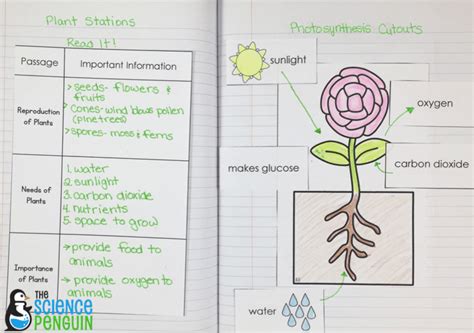 Plant Stations
Read It!
Passage
Important Information
Reproduction
of Plants
> seeds- flowers &
fruits
> cones- wind blows pollen
(pinetrees)
> spores- moss & ferns
Needs of
Plants
1. water
2. sunlight
3. carbon dioxide
4. nutrients
5. space to grow
Importance
of Plants
→ provide food to
animals
→ provide oxygen to
animals
THE
SCIENCE
PENGUIN
Photosynthesis Cutouts
sunlight
oxygen
makes glucose
carbon dioxide
water